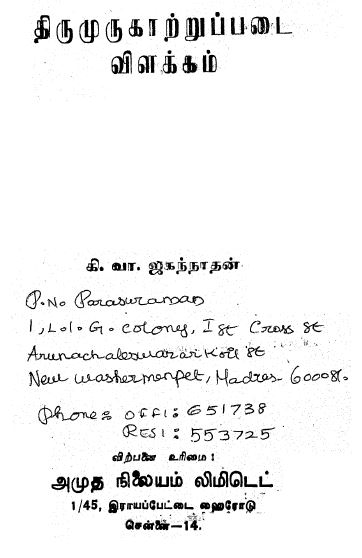 திருமுருகாற்றுப்படை
விளக்கம்
கி. வா. ஜகந்நாதன்
P. No Parasuraman
1, L.I.G. colony, I st Cross st
Arunachaleswarar Koil st
New washermenpet, Madras 600081.
Phone: OFFI: 651738
RESI: 553725
விற்பனை உரிமை :
அமுத நிலையம் லிமிடெட்
1/45, இராயப்பேட்டை ஹைரோடு
சென்னை—14.